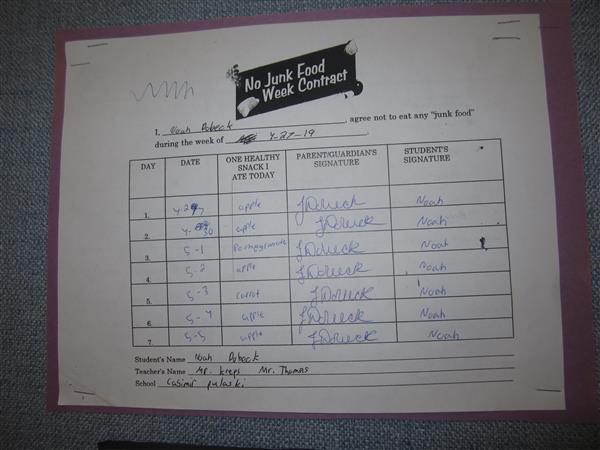 No Junk Food
Week Contract
I, Noah Dobeck, agree not to eat any "junk food"
during the week of 4-27-19.
DAY DATE ONE HEALTHY SNACK I ATE TODAY PARENT/GUARDIAN'S SIGNATURE STUDENT'S SIGNATURE
1. apple Noah
2. apple Noah
3. 5-1 Pomegranate Noah
4. 5-2 apple Noah
5. 5-3 carrot Noah
6. 5-4 apple Noah
7. 5-5 apple Noah
Student's Name Noah Dobeck
Teacher's Name Mr. Kreps Mr. Thomas
School Casimir pulaski